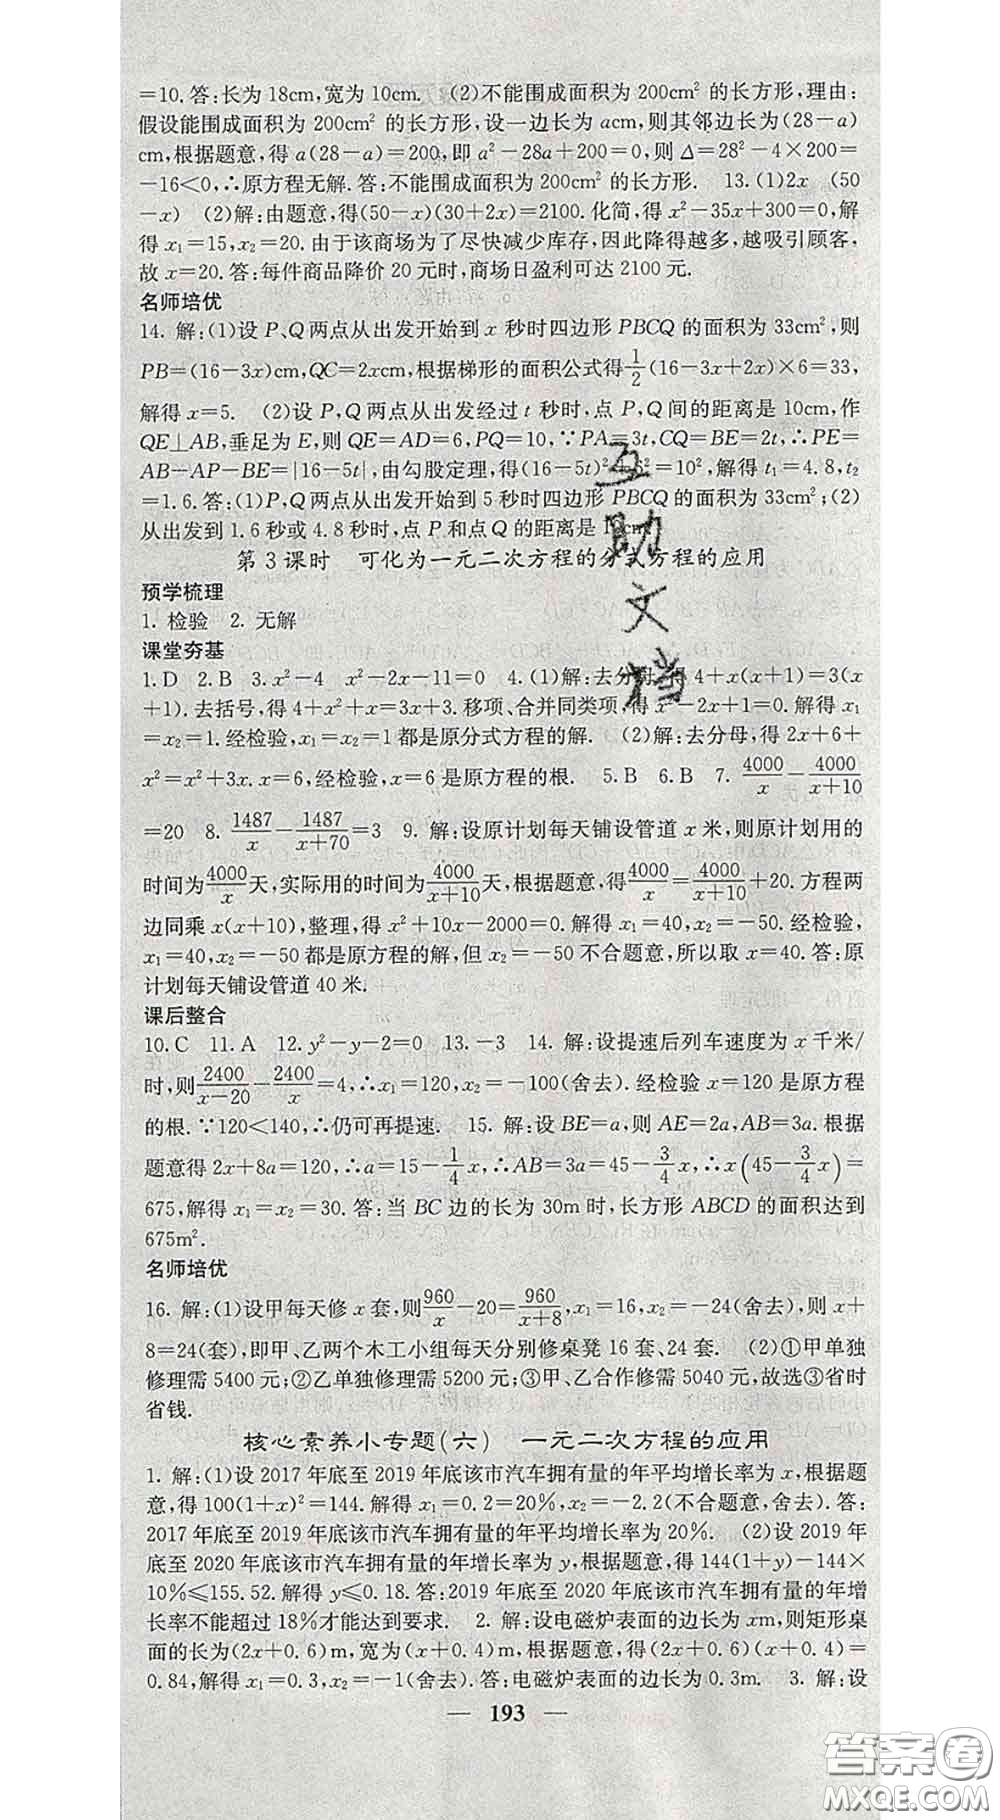 =10.答:长为18cm,宽为10cm. (2)不能围成面积为200cm²的长方形,理由:
假设能围成面积为200cm²的长方形,设一边长为acm,则其邻边长为(28-a)
cm,根据题意,得a(28-a)=200,即a²-28a+200=0,则Δ=28²-4×200=
-16<0,∴原方程无解.答:不能围成面积为200cm²的长方形. 13.(1)2x (50
-x) (2)解:由题意,得(50-x)(30+2x)=2100.化简,得x²-35x+300=0,解
得x₁=15,x₂=20.由于该商场为了尽快减少库存,因此降得越多,越吸引顾客,
故x=20.答:每件商品降价20元时,商场日盈利可达2100元.
名师培优
14. 解:(1)设P、Q两点从出发开始到x秒时四边形PBCQ的面积为33cm²,则
PB=(16-3x)cm,QC=2xcm,根据梯形的面积公式得1/2(16-3x+2x)×6=33,
解得x=5. (2)设P,Q两点从出发经过t秒时,点P,Q间的距离是10cm,作
QE⊥AB,垂足为E,则QE=AD=6,PQ=10,∵PA=3t,CQ=BE=2t,∴PE=
AB-AP-BE=|16-5t|,由勾股定理,得(16-5t)²+6²=10²,解得t₁=4.8,t₂
=1.6.答:(1)P,Q两点从出发开始到5秒时四边形PBCQ的面积为33cm²;(2)
从出发到1.6秒或4.8秒时,点P和点Q的距离是10cm.
第3课时 可化为一元二次方程的分式方程的应用
预学梳理
1. 检验 2. 无解
课堂夯基
1.D 2.B 3.x²-4 x²-2x-11=0 4.(1)解:去分母,得4+x(x+1)=3(x
+1).去括号,得4+x²+x=3x+3.移项、合并同类项,得x²-2x+1=0.解得x₁
=x₂=1.经检验,x₁=x₂=1都是原分式方程的解. (2)解:去分母,得2x+6+
x²=x²+3x.x=6,经检验,x=6是原方程的根. 5.B 6.B 7. 4000/x-4000/(x+10)
=20 8. 1487/x-1487/(x+70)=3 9. 解:设原计划每天铺设管道x米,则原计划用的
时间为4000/x天,实际用的时间为4000/(x+10)天,根据题意,得4000/x=4000/(x+10)+20.方程两
边同乘x(x+10),整理,得x²+10x-2000=0.解得x₁=40,x₂=-50.经检验,
x₁=40,x₂=-50都是原方程的解,但x₂=-50不合题意,所以取x=40.答:原
计划每天铺设管道40米.
课后整合
10.C 11.A 12.y²-y-2=0 13.-3 14. 解:设提速后列车速度为x千米/
时,则2400/(x-20)-2400/x=4,∴x₁=120,x₂=-100(舍去).经检验x=120是原方程
的根.∵120<140,∴仍可再提速. 15. 解:设BE=a,则AE=2a,AB=3a.根据
题意得2x+8a=120,∴a=15-1/4x,∴AB=3a=45-3/4x,∴x(45-3/4x)=
675,解得x₁=x₂=30.答:当BC边的长为30m时,长方形ABCD的面积达到
675m².
名师培优
16. 解:(1)设甲每天修x套,则960/x-20=960/(x+8),x₁=16,x₂=-24(舍去),则x+
8=24(套),即甲、乙两个木工小组每天分别修桌凳16套、24套. (2)①甲单独
修理需5400元;②乙单独修理需5200元;③甲、乙合作修需5040元,故选③省时
省钱.
核心素养小专题(六) 一元二次方程的应用
1. 解:(1)设2017年底至2019年底该市汽车拥有量的年平均增长率为x,根据题
意,得100(1+x)²=144.解得x₁=0.2=20%,x₂=-2.2(不合题意,舍去).答:
2017年底至2019年底该市汽车拥有量的年平均增长率为20%. (2)设2019年
底至2020年底该市汽车拥有量的年增长率为y,根据题意,得144(1+y)-144×
10%≤155.52.解得y≤0.18.答:2019年底至2020年底该市汽车拥有量的年增
长率不能超过18%才能达到要求. 2. 解:设电磁炉表面的边长为xm,则矩形桌
面的长为(2x+0.6)m,宽为(x+0.4)m,根据题意,得(2x+0.6)(x+0.4)=
0.84,解得x₁=0.3,x₂=-1(舍去).答:电磁炉表面的边长为0.3m. 3. 解:设
— 193 —
互助文档
答案圈
MXQE.COM